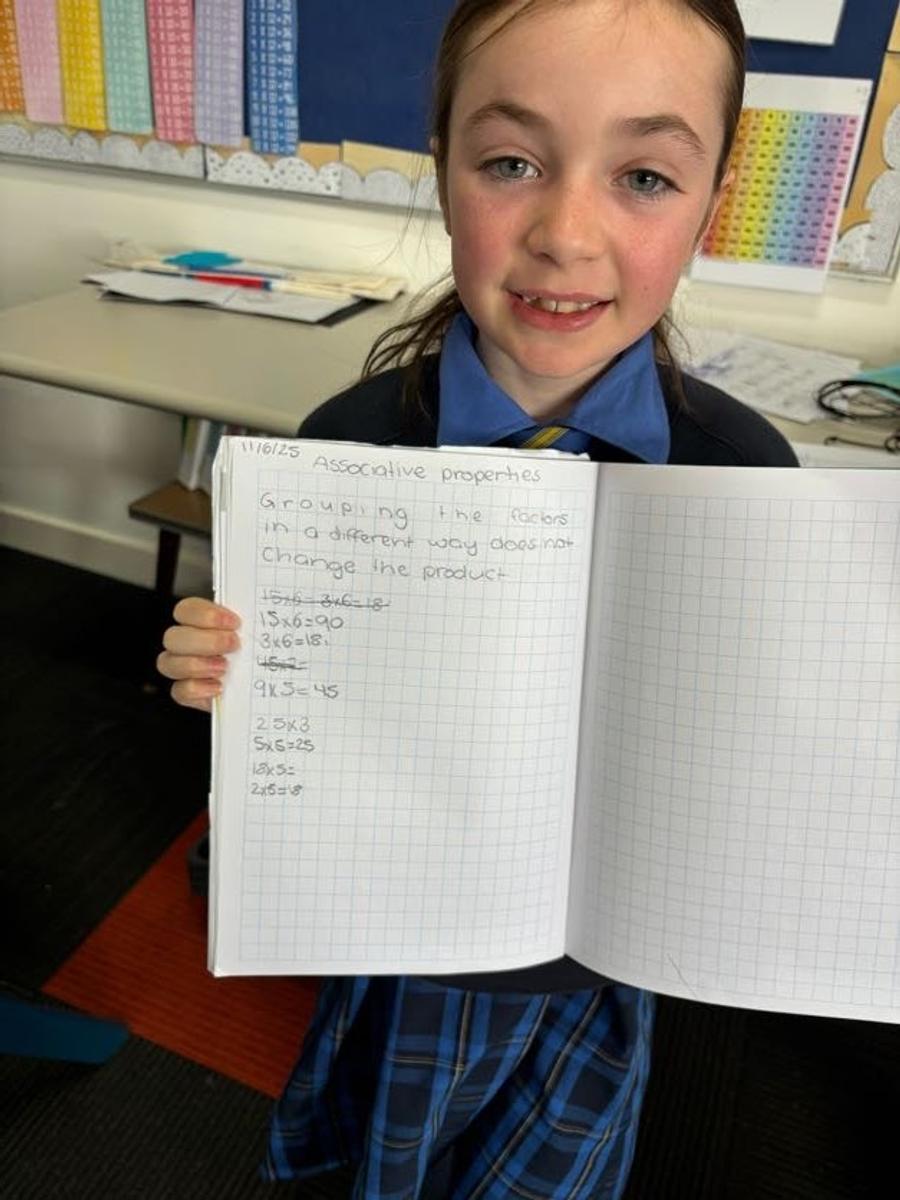 11/6/25
Associative properties
Grouping the factors
in a different way does not
change the product
15x6= 3x6=18
15x6=90
3x6=18.
45x2=
9x5=45
25x3
5x5=25
18x5=
2x5=18